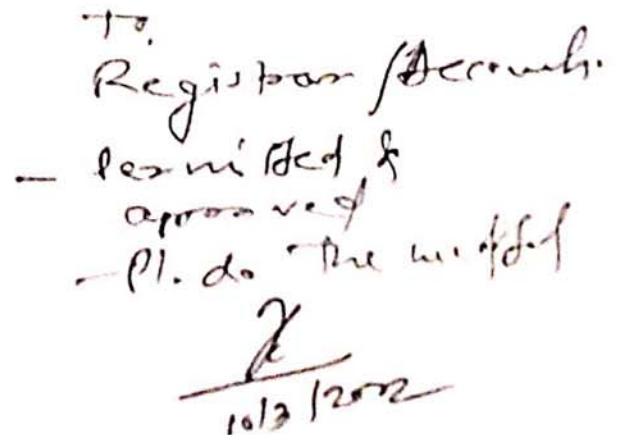 To,
Registrar/Accounts.
- Permitted &
approved
- Pl. do the needful